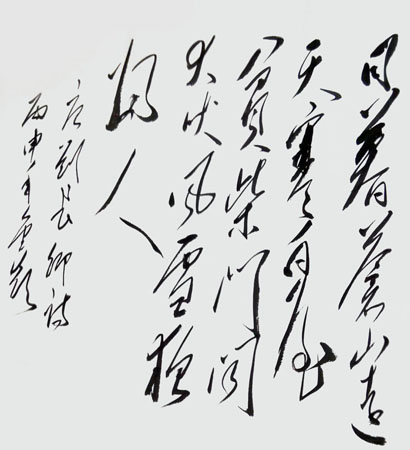 日暮蒼山遠
天寒白屋
貧柴門聞
犬吠風雪夜
歸人
唐劉長卿詩
丙申年雲